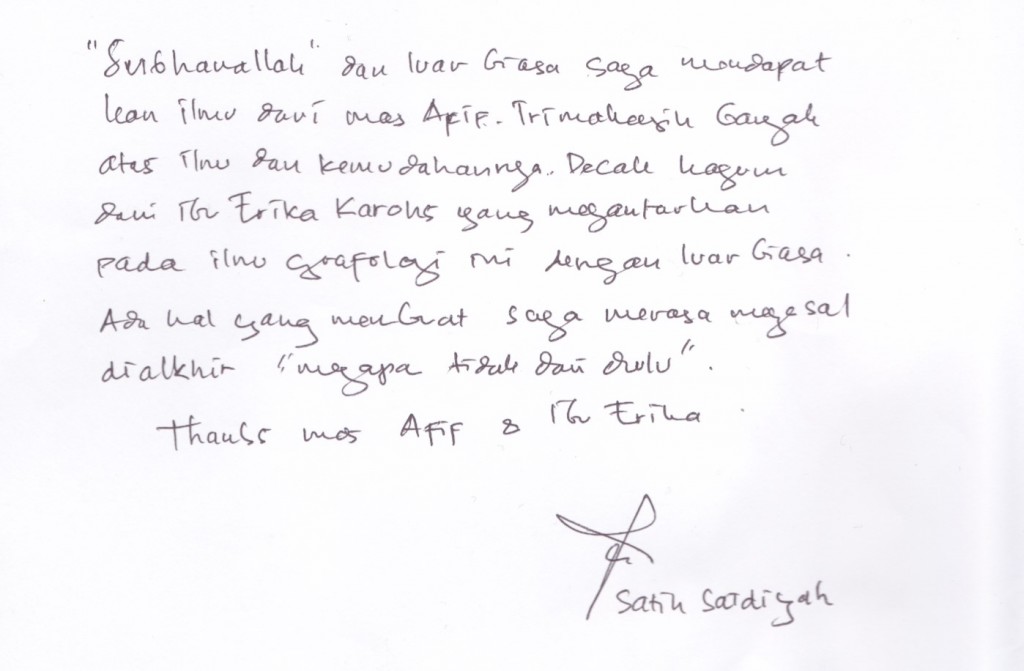 "Subhanallah" dan luar biasa saya mendapat
kan ilmu dari mas Afif. Trimakasih banyak
atas ilmu dan kemudahannya. Decak kagum
dari ibu Erika Karohs yang megantarkan
pada ilmu grafologi ini dengan luar biasa.
Ada hal yang membuat saya merasa meyesal
dialkhir "megapa tidak dari dulu".
Thanks mas Afif & Ibu Erika
Satih Sardiyah